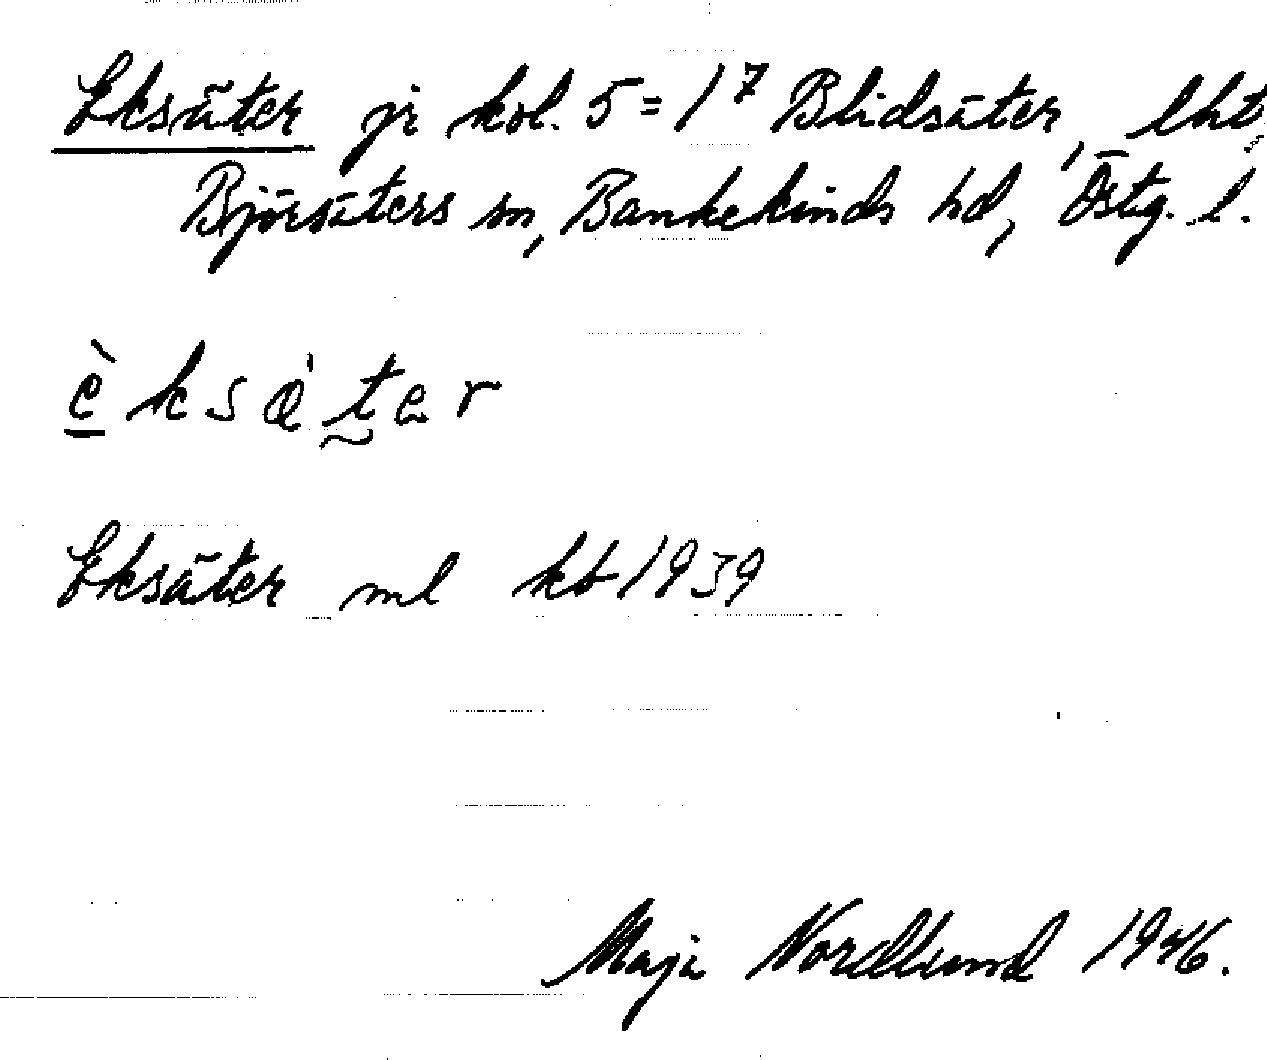 Eksäter jr kol. 5 = 1⁷ Blidsäter, lht,
Björsäters sn, Bankekinds hd, Östg. l.
è k s ä̀ t e r
Eksäter ml kb 1939
Maja Nordlund 1946.